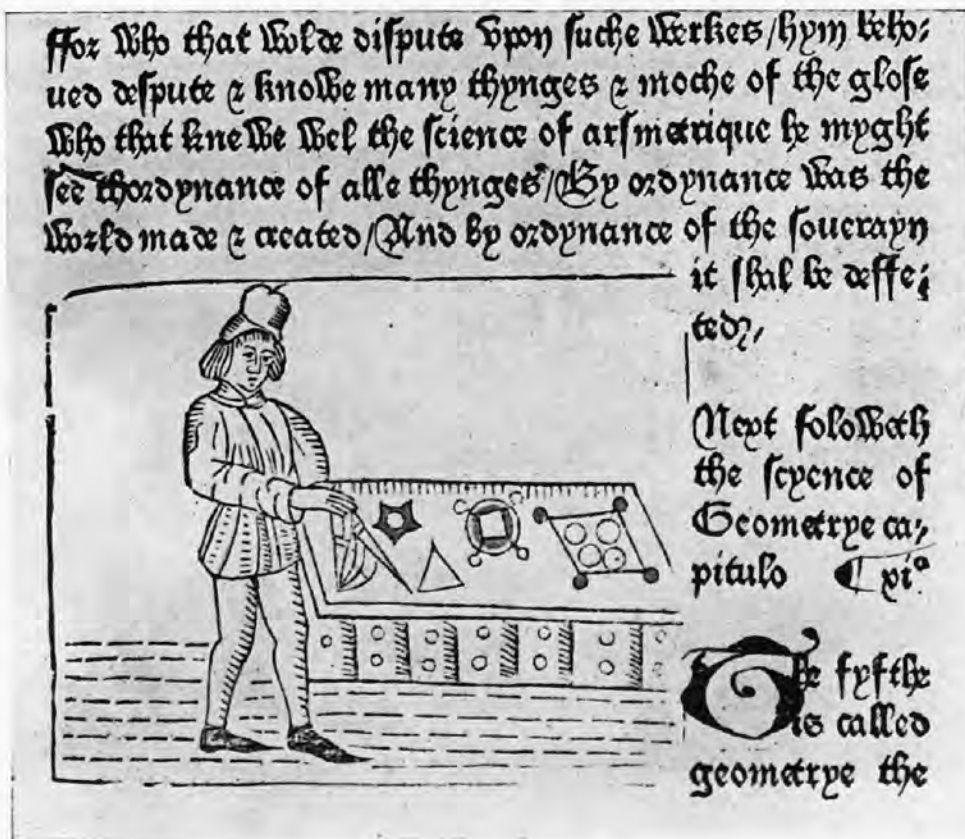 ffor Who that wolde dispute vpon suche werkes/hym beho:
ued despute & knowe many thynges & moche of the glose
Who that knewe wel the science of arsmetrique he myght
see thordynance of alle thynges/By ordynance was the
world made & created/And by ordynance of the souerayn
it shal be deffe:
ted,
Next foloweth
the scyence of
Geometrye ca,
pitulo xiº
The fyfthe
is called
geometrye the